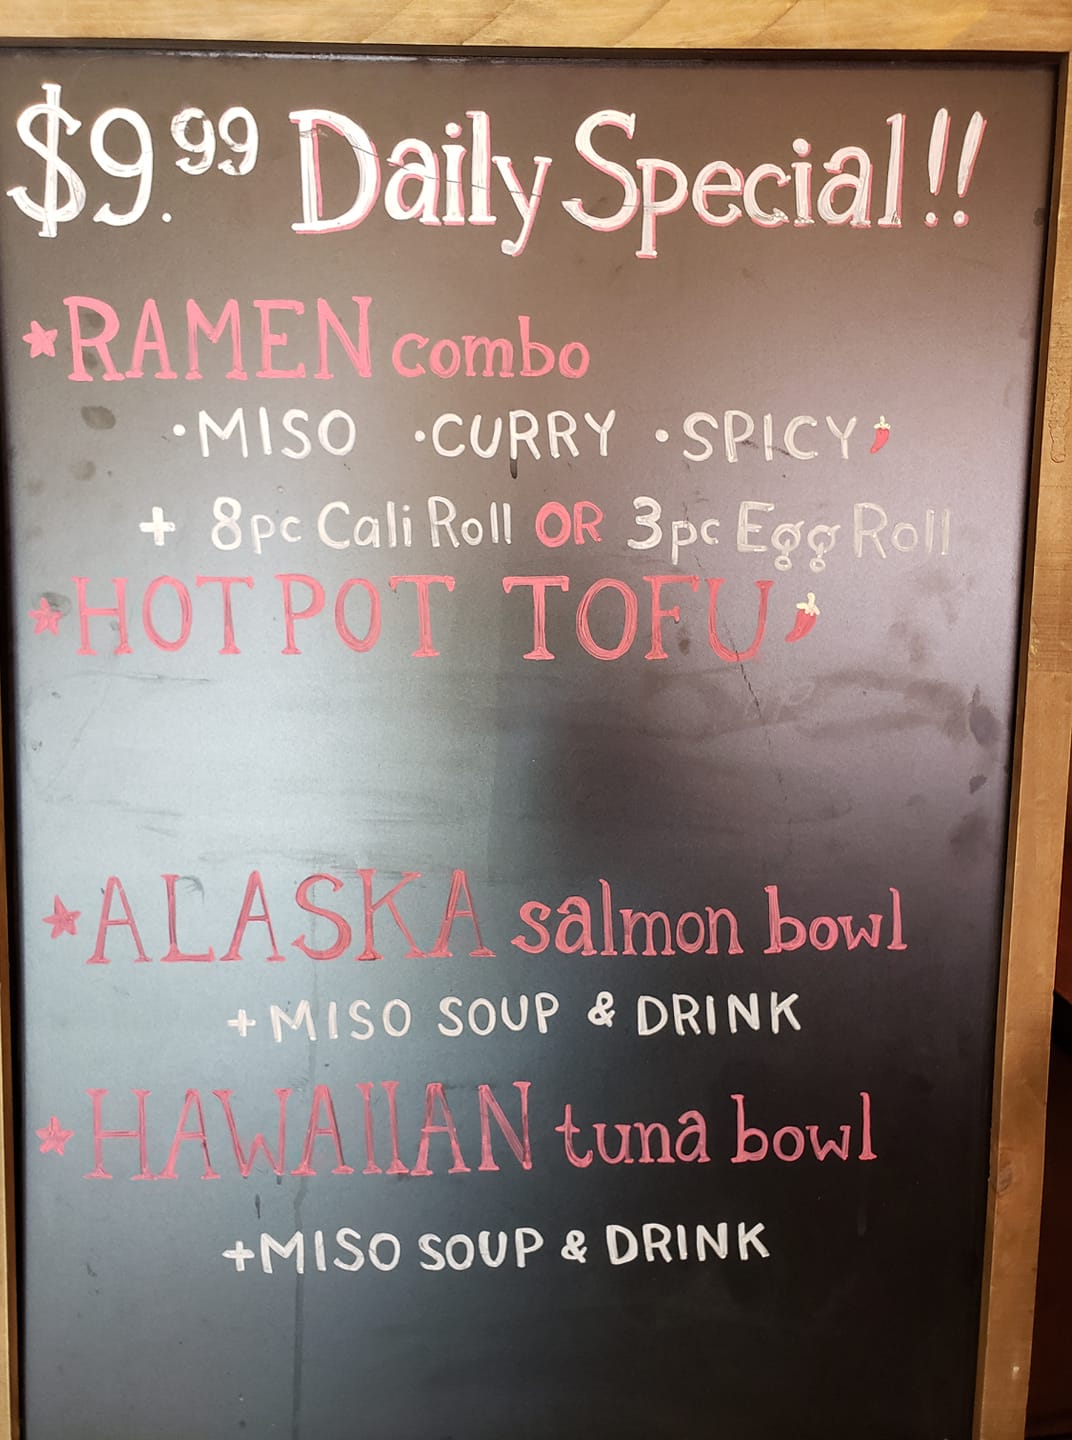 $9.99 Daily Special!!
★RAMEN combo
·MISO ·CURRY ·SPICY
+ 8pc Cali Roll OR 3pc Egg Roll
★HOT POT TOFU
★ALASKA salmon bowl
+MISO SOUP & DRINK
★HAWAIIAN tuna bowl
+MISO SOUP & DRINK